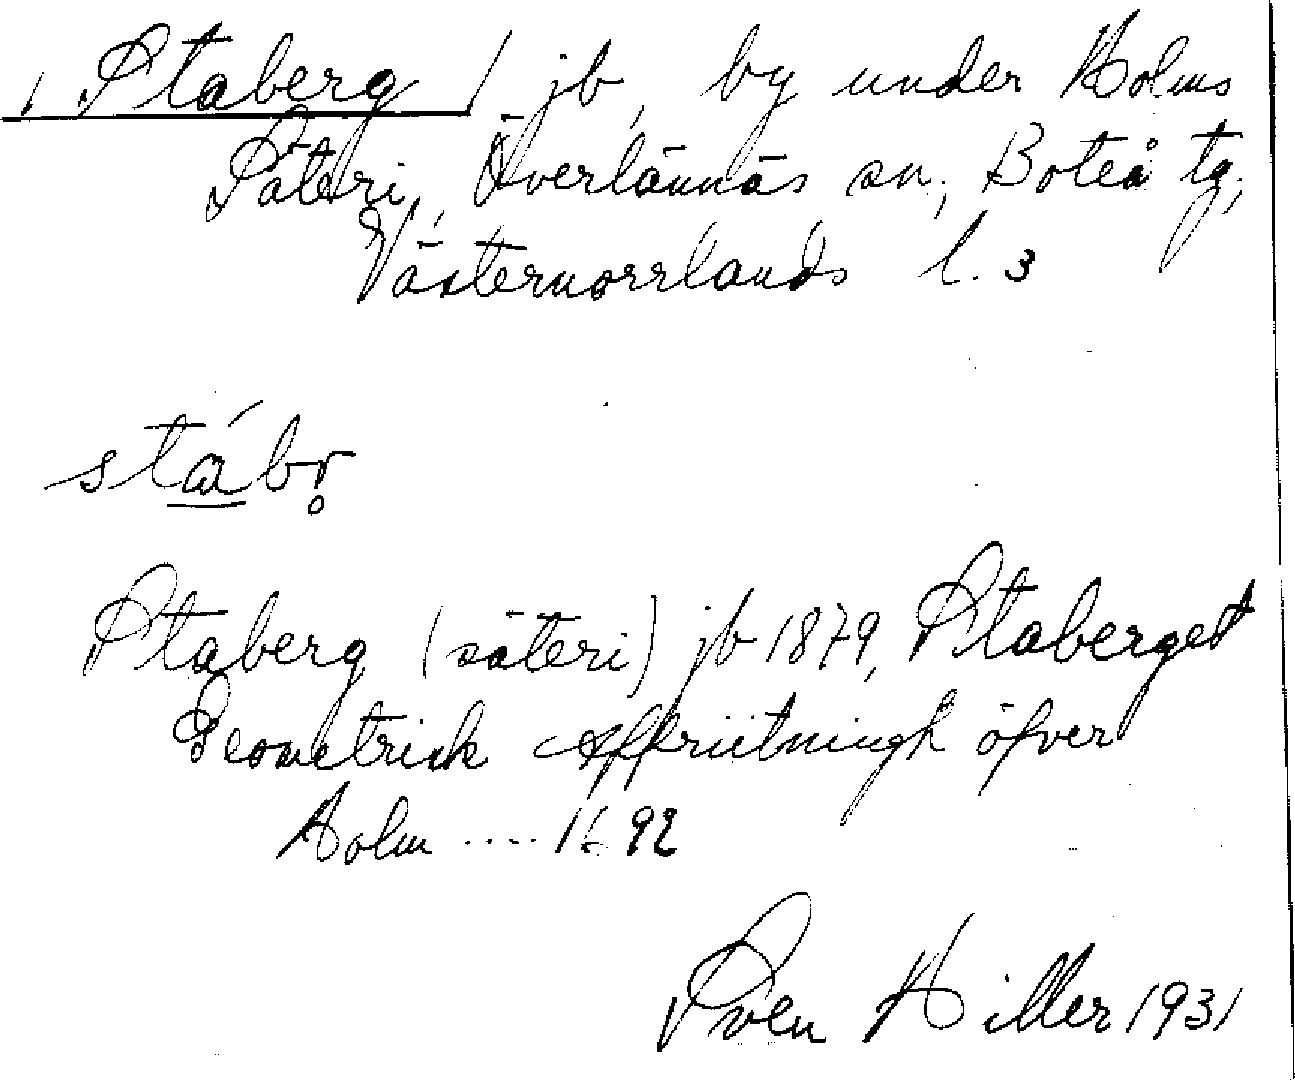 / Staberg / jb, by under Holms
Säteri, Överlännäs sn, Boteå tg,
Västernorrlands l. 3
stábr̥
Staberg (säteri) jb 1879, Staberget
Geometrisk Affriitningh öfver
Holm .... 1692
Sven Hiller 1931